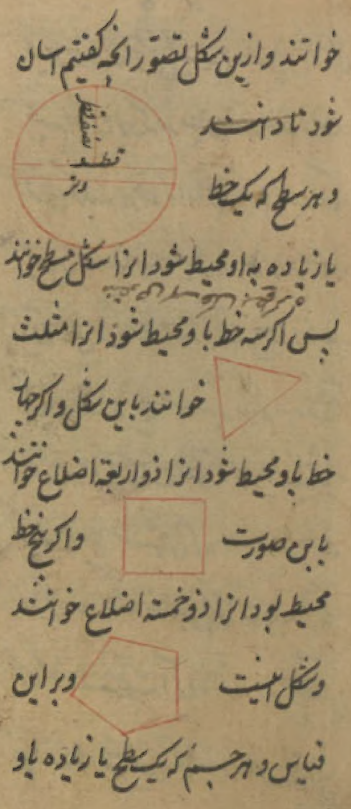 خوانند و ازین شکل تصور انچه کفتیم اسان
نصف قطر
شود تا دانند
قطر
وتر
و هر سطح که یک خط
یا زیاده به او محیط شود انرا شکل مسطح خوانند
پس اکر سه خط باو محیط شود انرا مثلث
خوانند باین شکل و اکر چهار
خط باو محیط شود انرا ذو اربعة اضلاع خوانند
باین صورت و اکر پنج خط
محیط بود انرا ذو خمسته اضلاع خوانند
و شکل اینست و بر این
قیاس و هر جسم که یک سطح یا زیاده باو